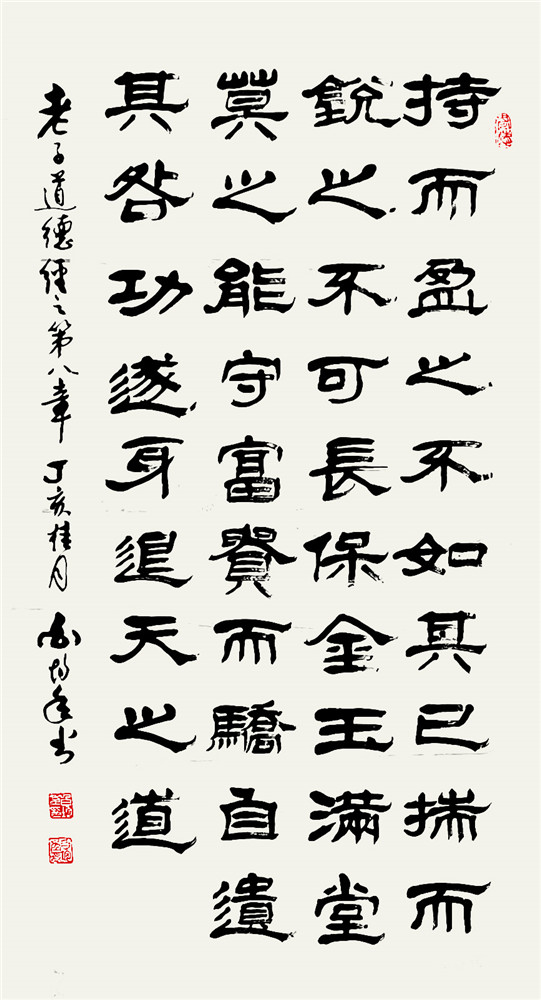 持而盈之不如其已揣而
銳之不可長保金玉滿堂
莫之能守富貴而驕自遺
其咎功遂身退天之道
老子道德經之第八章 丁亥桂月 书